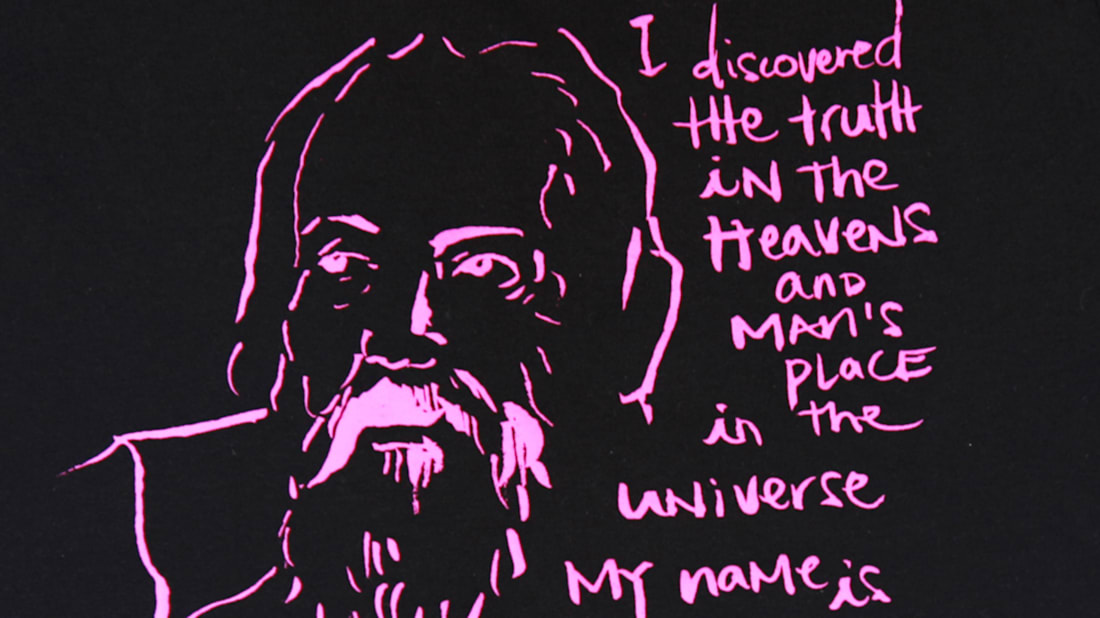 I discovered
tHe trutH
iN The
HeaveNS
anD
MAn's
PLaCE
in the
uNiverse
MY naMe is